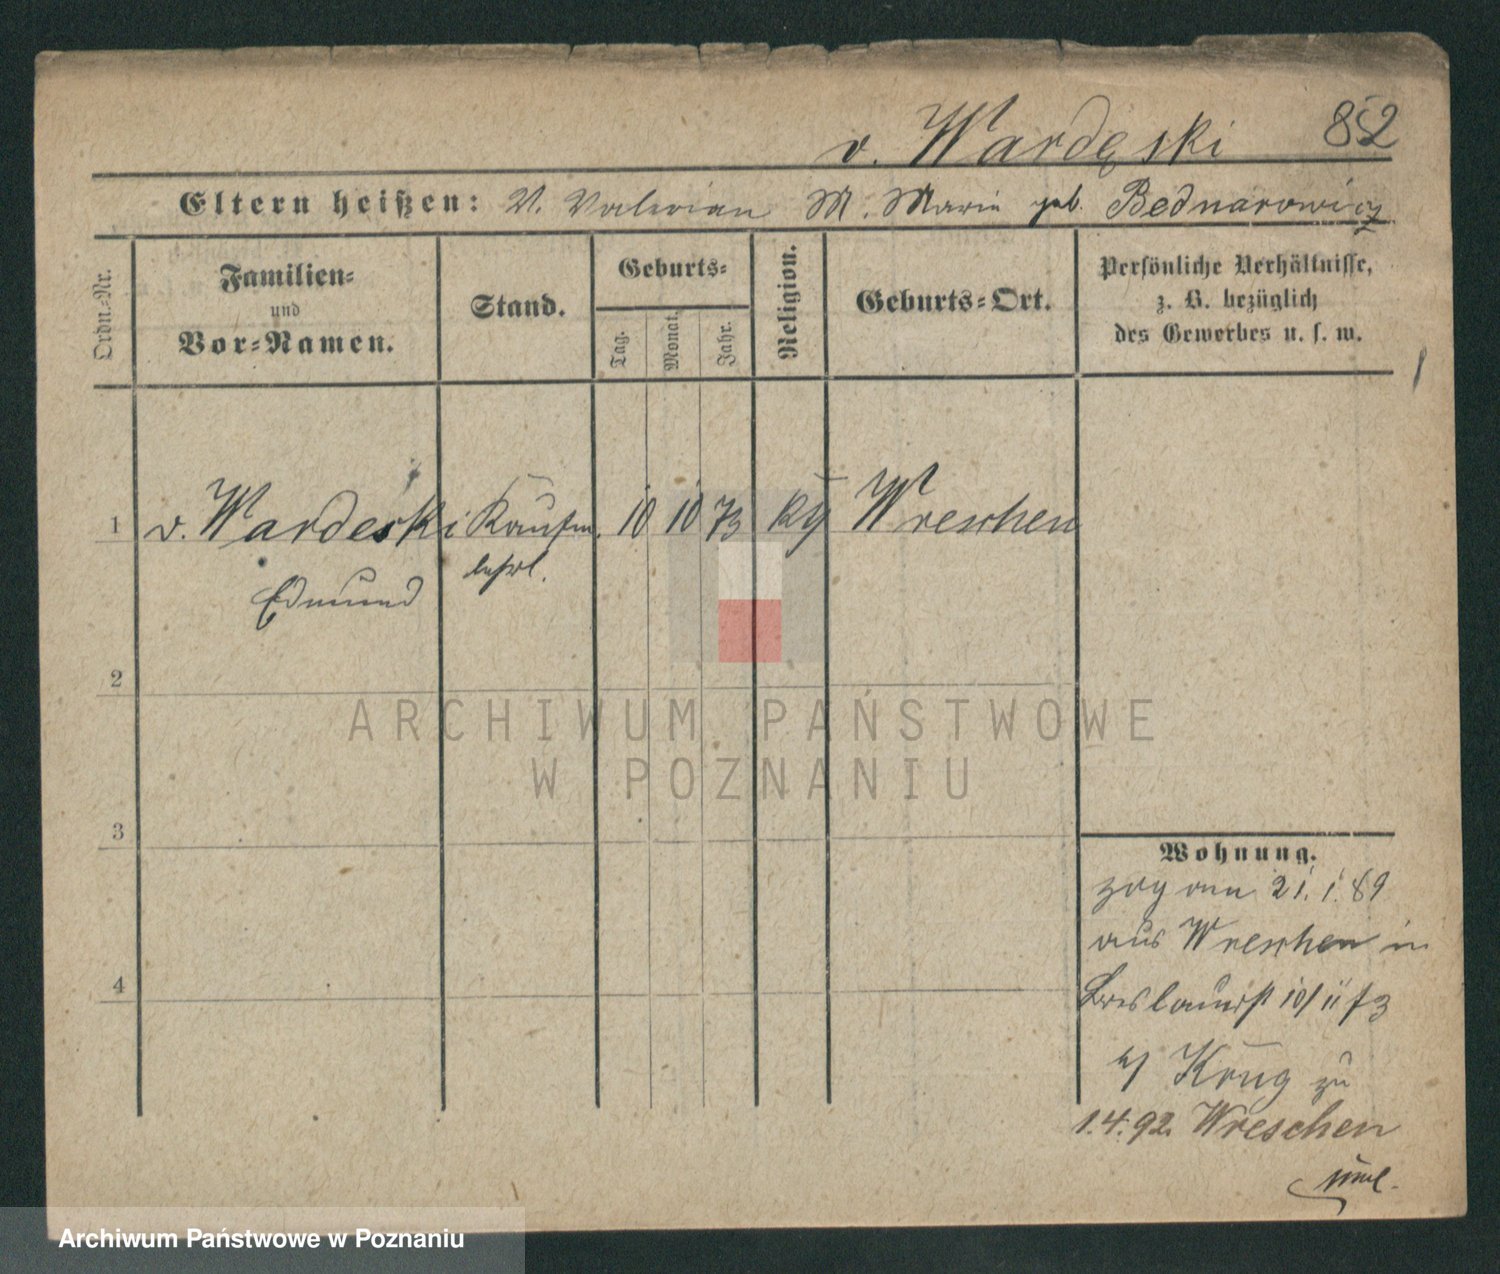 v. Wardęski 852
Eltern heißen: V. Valerian M. Marie geb. Bednarowicz
Ordn.-Nr.
Familien-
und
Vor-Namen.
Stand.
Geburts-
Tag.
Monat.
Jahr.
Religion.
Geburts-Ort.
Persönliche Verhältnisse,
z. B. bezüglich
des Gewerbes u. s. w.
1 v. Wardeski Kaufm. 10 10 73 Wreschen
Edmund lehrl.
2
ARCHIWUM PAŃSTWOWE
W POZNANIU
3
Wohnung.
zog am 21.1.89
aus Wreschen in
4
Breslauerst 10/11
Krug zu
1.4.92. Wreschen
Archiwum Państwowe w Poznaniu